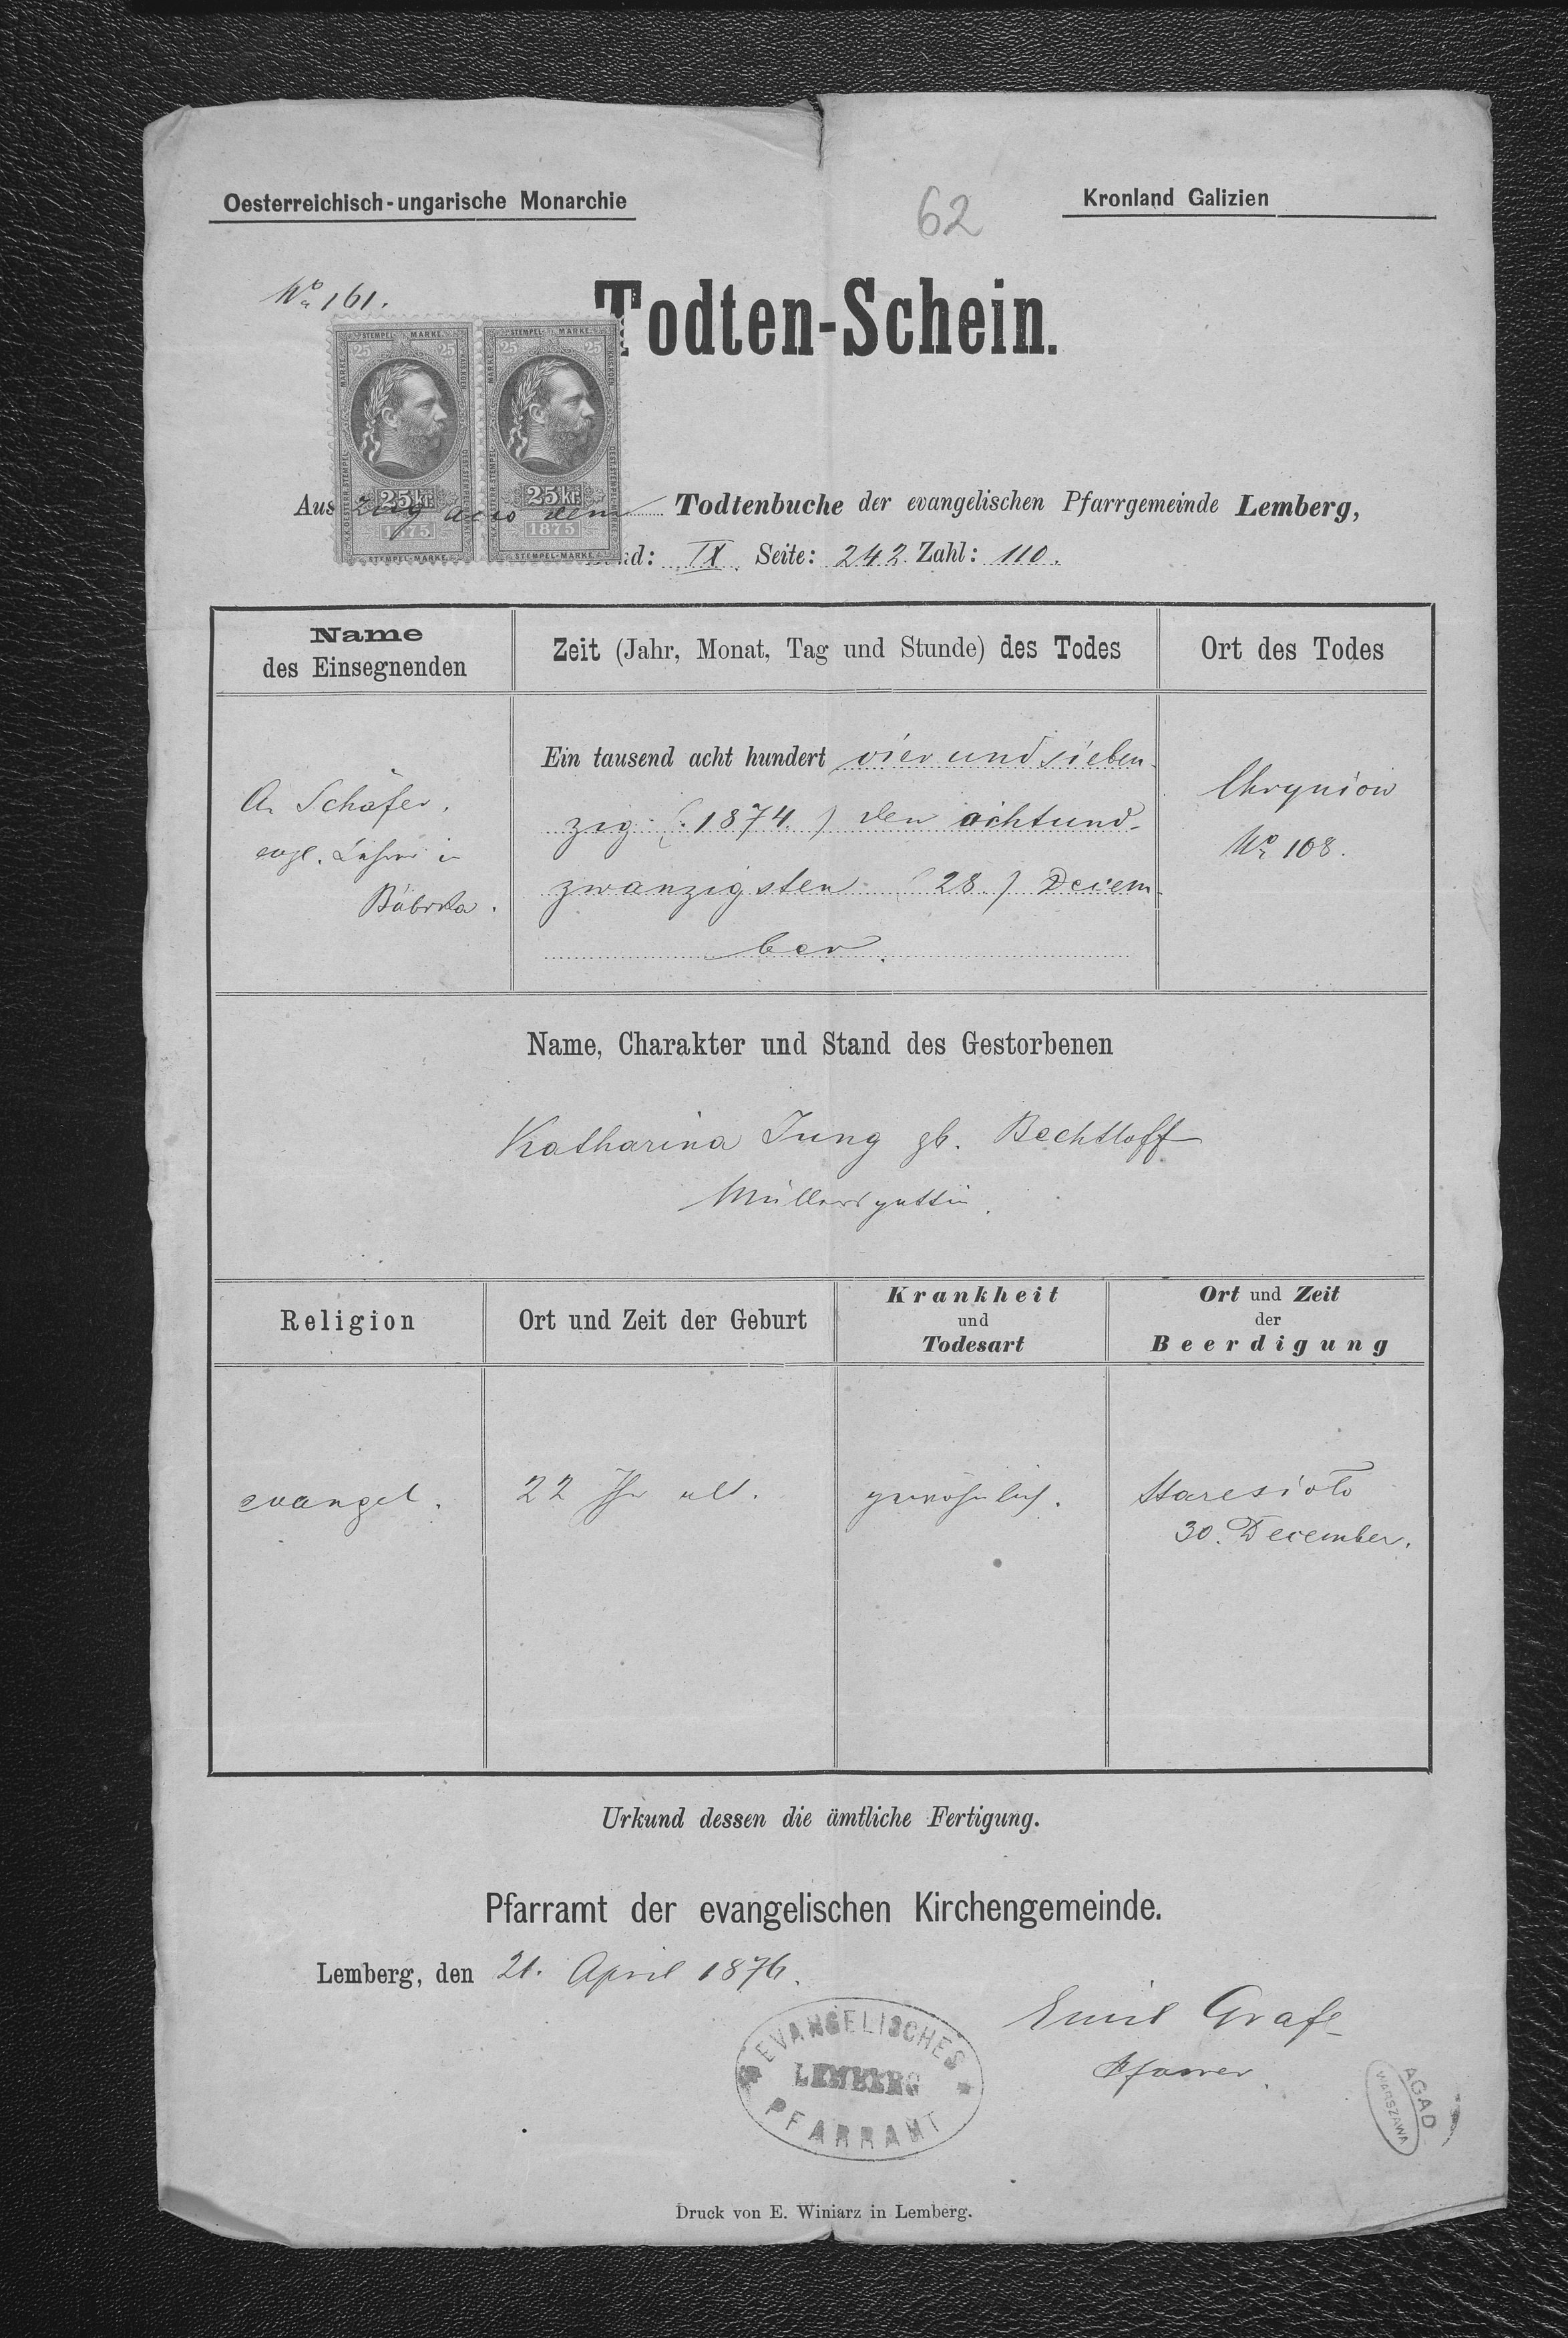 Oesterreichisch-ungarische Monarchie
62
Kronland Galizien
No 161.
Todten-Schein.
STEMPEL- MARKE
25 25
25 kr
1875
STEMPEL-MARKE
STEMPEL- MARKE
25 25
25 kr
1875
STEMPEL-MARKE
Auszug aus dem Todtenbuche der evangelischen Pfarrgemeinde Lemberg,
nd: IX. Seite: 242. Zahl: 110.
Name
des Einsegnenden
Zeit (Jahr, Monat, Tag und Stunde) des Todes
Ort des Todes
A. Schäfer.
evgl. Lehrer in
Bóbrka.
Ein tausend acht hundert vier und sieben-
zig (: 1874.) den achtund-
zwanzigsten (28.) Decem-
ber.
No 108.
Name, Charakter und Stand des Gestorbenen
Katharina Jung gb. Bechtloff
Müllersgattin.
Religion
Ort und Zeit der Geburt
Krankheit
und
Todesart
Ort und Zeit
der
Beerdigung
evangel.
22 Jhr alt.
gewöhnlich.
Staresioło
30. December.
Urkund dessen die ämtliche Fertigung.
Pfarramt der evangelischen Kirchengemeinde.
Lemberg, den 21. April 1876.
Emil Grafe
Pfarrer.
EVANGELISCHES
LEMBERG
PFARRAMT
AGAD
WARSZAWA
Druck von E. Winiarz in Lemberg.